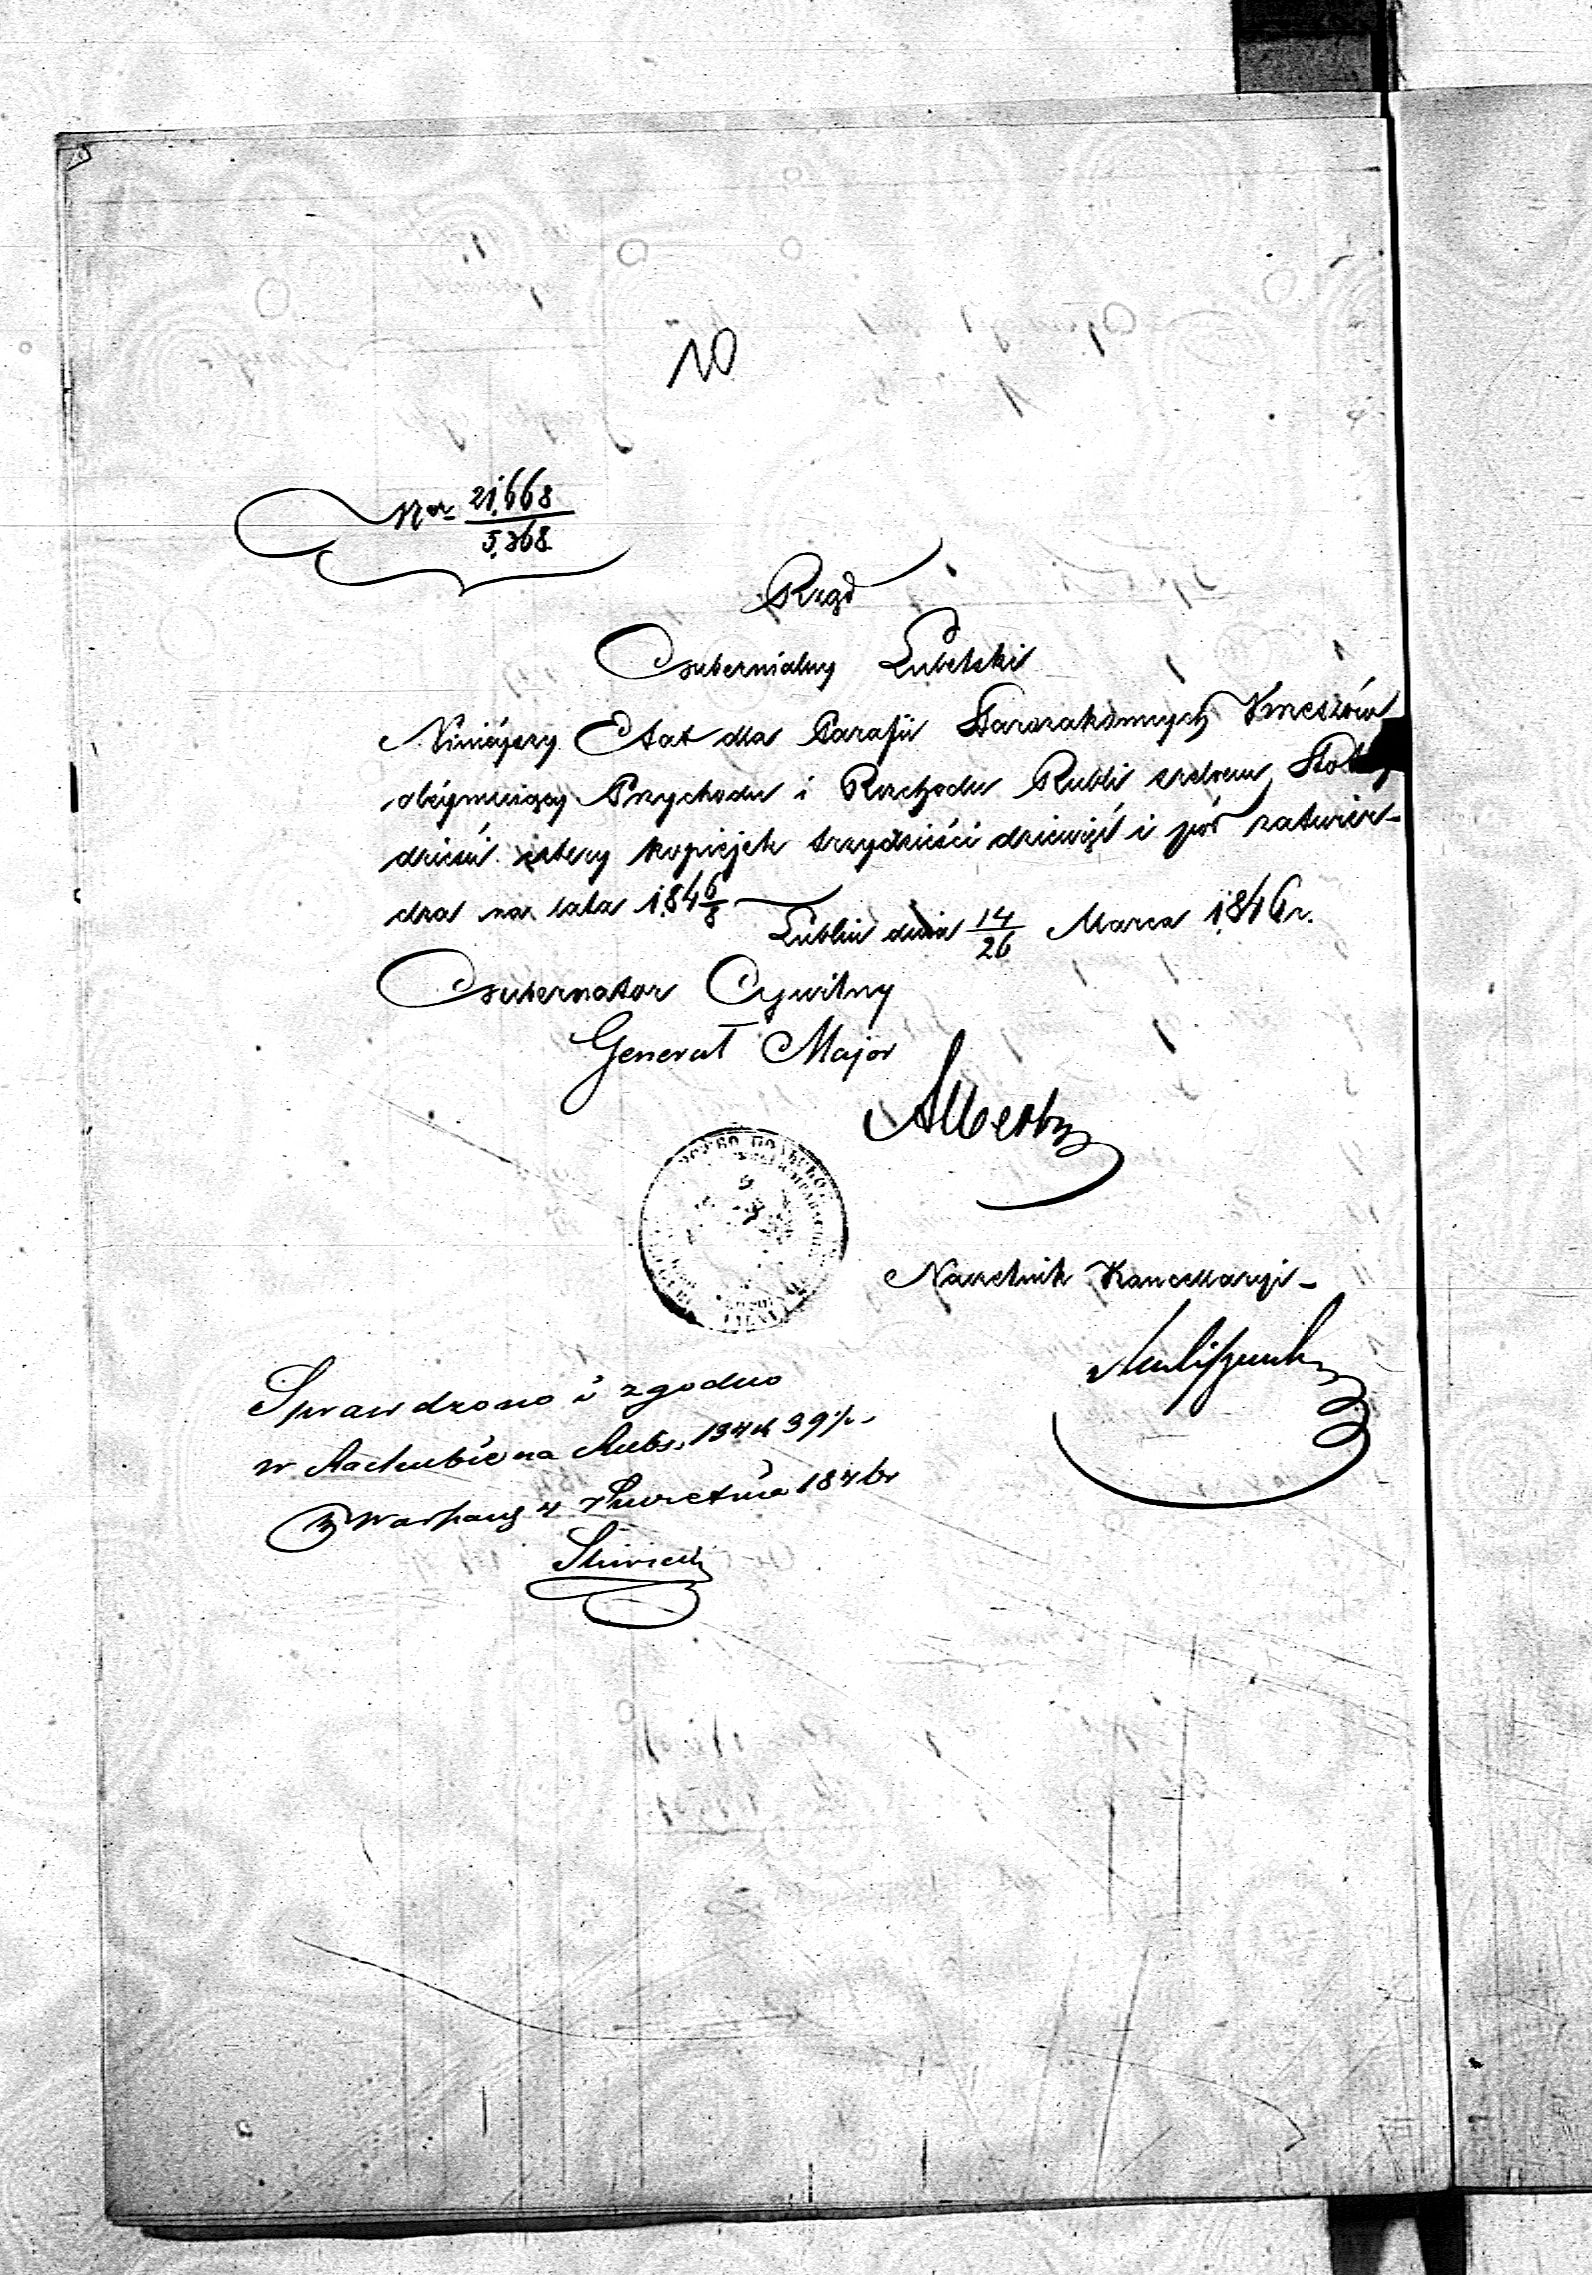 10
Nr 21,668
5,368
Rząd
Gubernialny Lubelski
Niniejszy Etat dla Parafii Starozakonnych Kmeszów
obejmuiący Przychodu i Rozchodu Rubli srebrem Sto
dzieści cztery kopiejek trzydzieści dziewięć i pół zatwier-
dza na lata 1846/8
Lublin dnia 14/26 Marca 1846 r.
Gubernator Cywilny
Generał Major
Albertow
Naczelnik Kancellaryi
Sprawdzono i zgodno
w Rachubie na Rubs. 134 k 39½
W Warszawie 4 Kwietnia 1846 r